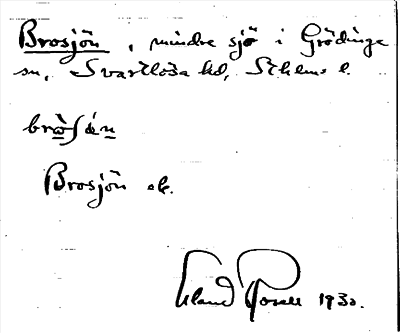 Brosjön, mindre sjö i Grödinge
sn, Svartlösa hd, Sthlms l.
bro̲ʃɵ́n̲
Brosjön ek.
Erland Rosell 1930.